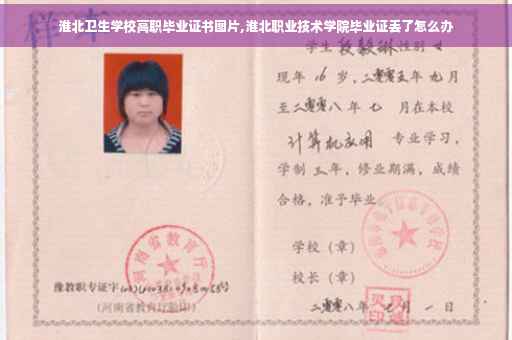 淮北卫生学校高职毕业证书图片,淮北职业技术学院毕业证丢了怎么办
学生 段毅琳 性别 女
现年 16 岁，二零零五年 九月
至二零零八年 七 月在本校
计算机应用 专业学习，
学制 三年，修业期满，成绩
合格，准予毕业
学校（章）
校长（章）
二零零八年 月 一 日
河南省教育厅
豫教职专证字
（河南省教育厅验印）